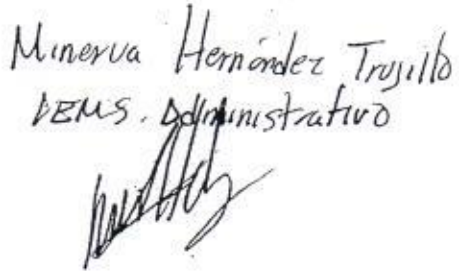 Minerva Hernández Trujillo
DEMS. Administrativo